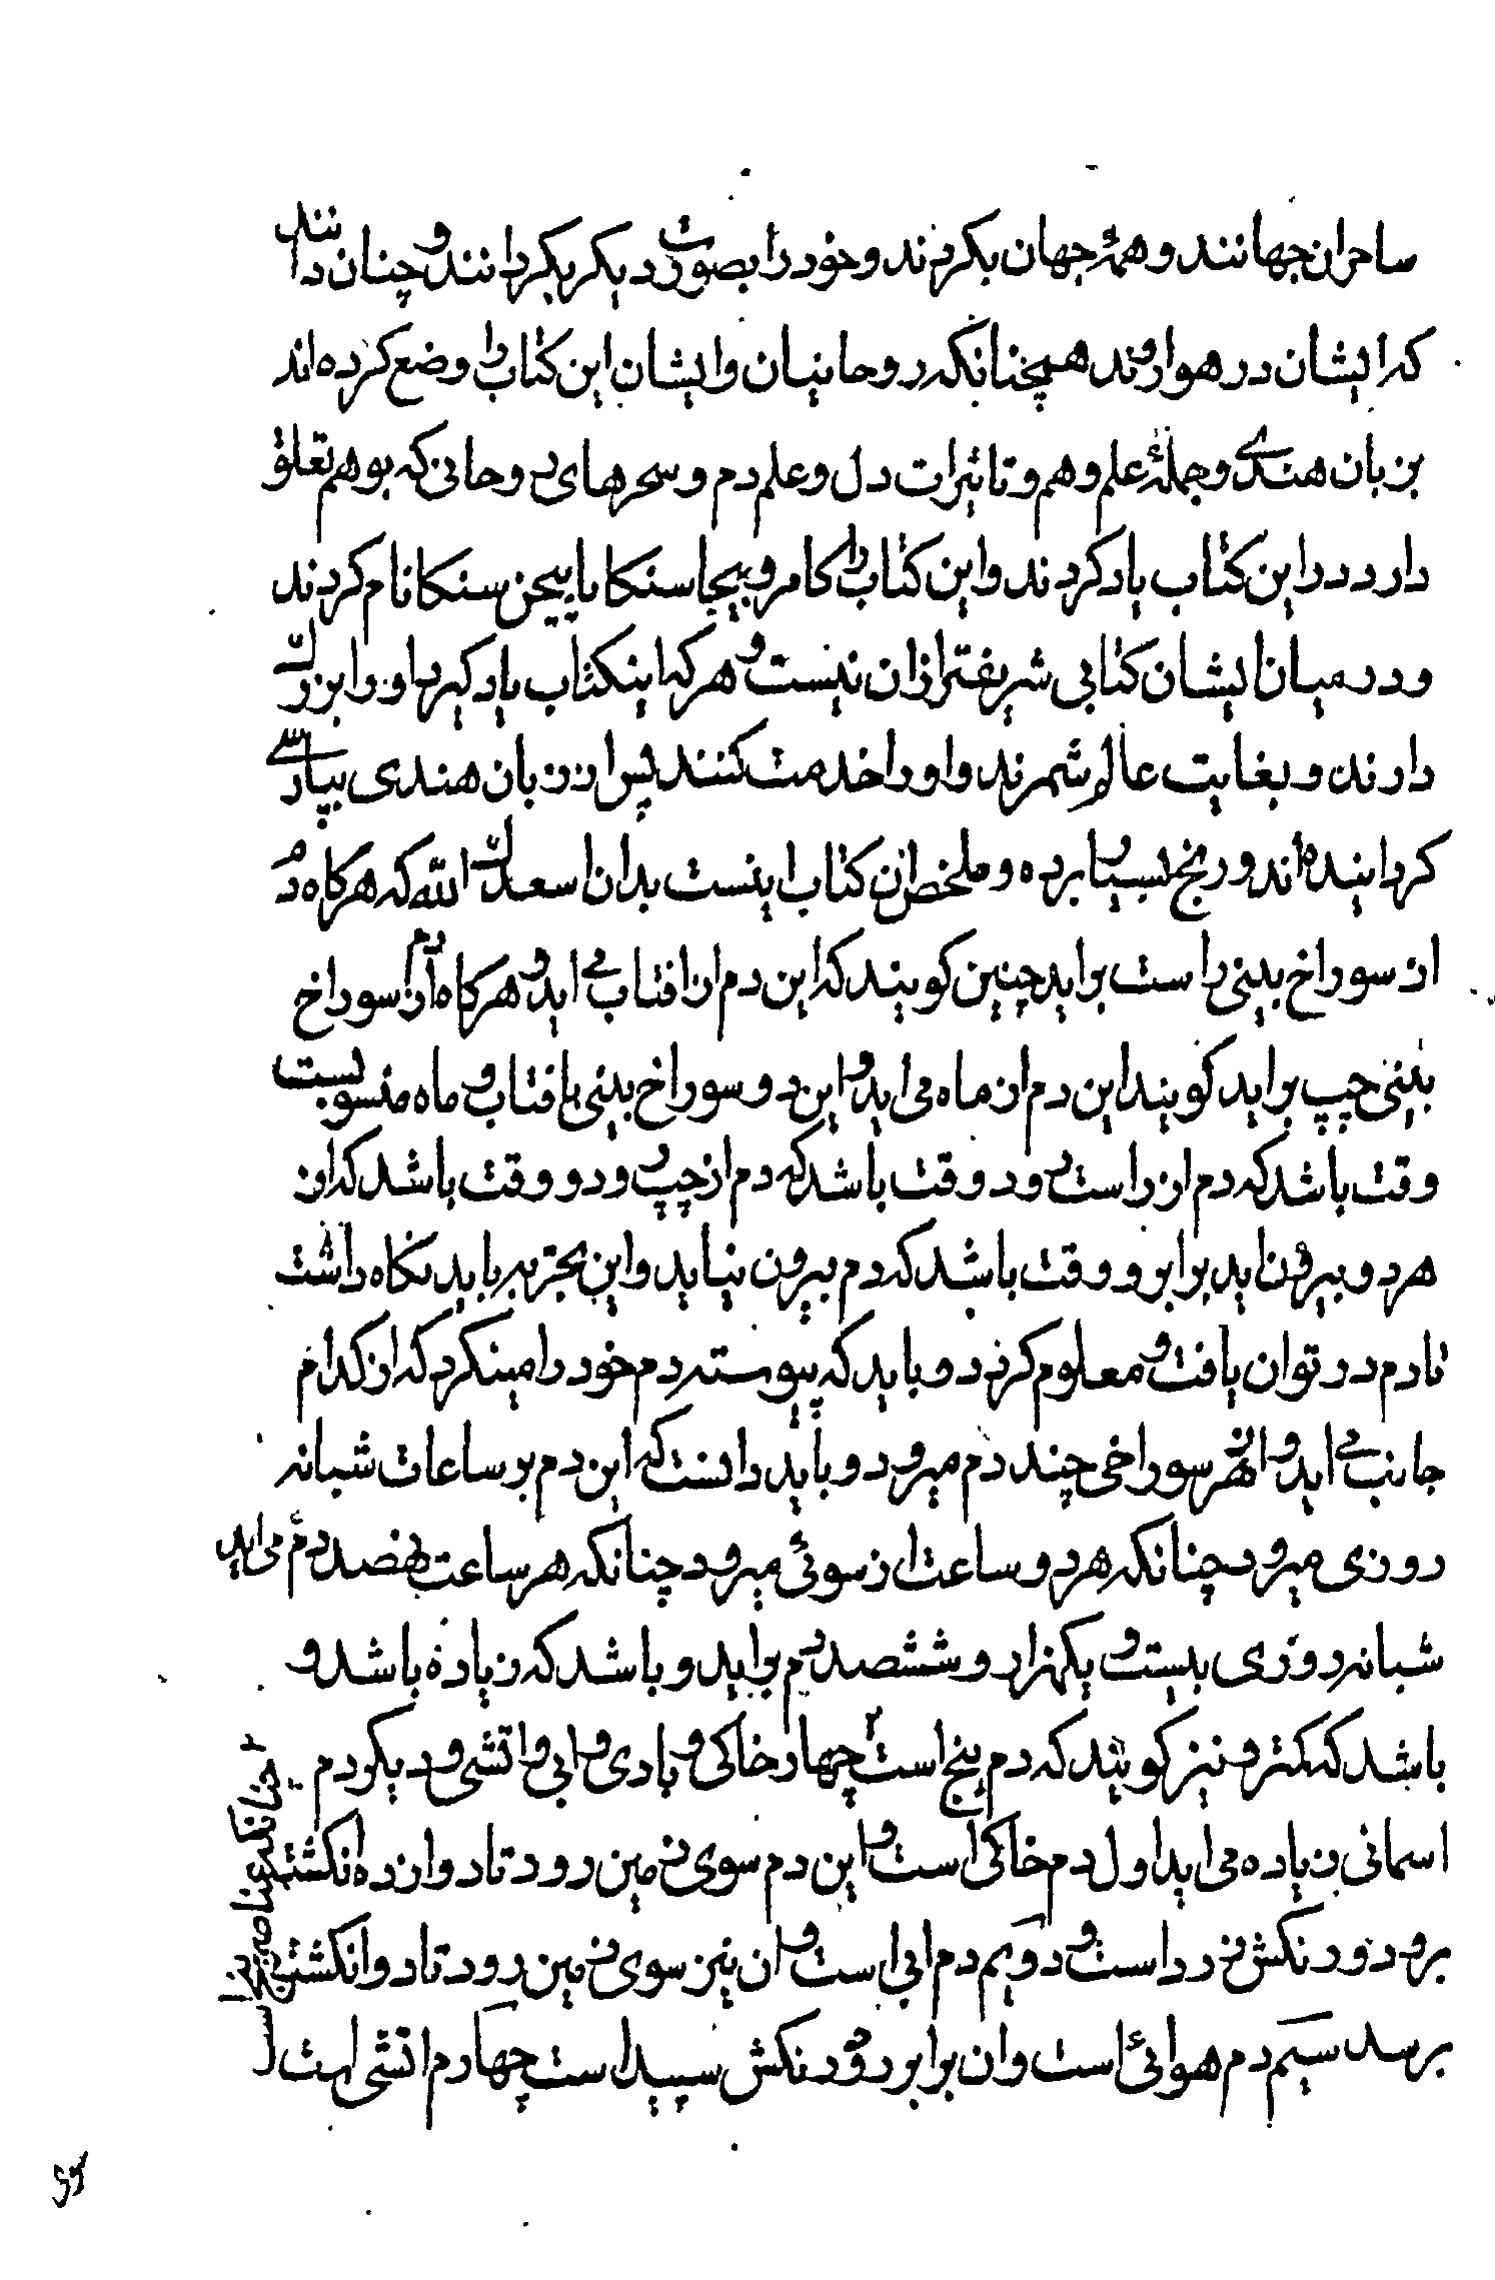 ساحران جهانند و همهٔ جهان بکردند و خود را بصورت دیکر بکردانند و چنان دانند
که ایشان در هوا روند همچنانکه روحانیان و ایشان این کتاب را وضع کرده اند
بزبان هندی و جملهٔ علم و هم و تاثیرات دل و علم دم و سحرهای روحانی که بوهم تعلق
دارد در این کتاب یاد کردند و این کتاب را کامرو بیجا سنکا یا بیجن سنکا نام کردند
و در میان ایشان کتابی شریفتر ازان نیست و هر که اینکتاب یاد کیرد او را بزرک
دارند و بغایت عالم شمرند و او را خدمت کنند پس از زبان هندی بپارسی
کردانیده اند و رنج بسیار برده و ملخص ان کتاب اینست بدان اسعدک الله که هرکاه دم
از سوراخ بینی راست براید چنین کویند که این دم از افتاب می اید و هرکاه دم از سوراخ
بینی چپ براید کویند این دم از ماه می اید و این دو سوراخ بینی بافتاب و ماه منسوبست
وقت باشد که دم از راست رود و وقت باشد که دم از چپ رود و وقت باشد که از
هر دو بیرون اید برابر و وقت باشد که دم بیرون نیاید و این تجربه باید نکاه داشت
تا دم در توان یافت و معلوم کرد و باید که پیوسته دم خود را مینکرد که از کدام
جانب می اید و از هر سوراخی چند دم میرود و باید دانست که این دم بر ساعات شبانه
روزی میرود چنانکه هر دو ساعت از سوئی میرود چنانکه هر ساعت نهصد دم می اید
شبانه روزی بیست و یکهزار و ششصد دم براید و باشد که زیاده باشد و
باشد که کمتر و نیز کویند که دم پنج است ۲ چهار خاکی و بادی و ابی و اتشی و دیکر دم
اسمانی زیاده می اید اول دم خاکی است و این دم سوی زمین رود تا دوازده انکشت
برود و رنکش زرد است و دویم دم ابی است و ان نیز سوی زمین رود تا دو انکشت
برسد سیم دم هوائی است و ان برابر رود و رنکش سپید است چهارم اتشی است
۲ چنانکه عناصر پنج است